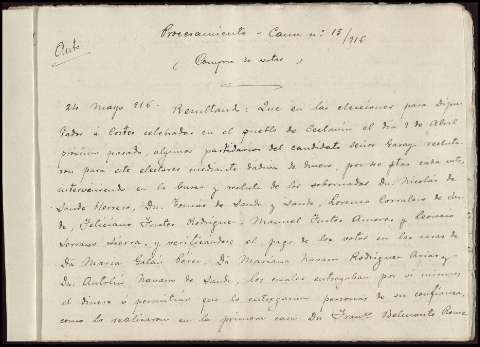 Auto
Procesamiento - Causa nº 15/916
(Compra de votos)
24 Mayo 916 - Resultando: Que en las elecciones para Dipu
tados á Cortes celebradas en el pueblo de el día 9 de Abril
próximo pasado, algunos partidarios del candidato Señor Garay
para este electores mediante dádiva de dinero, por pesetas cada voto,
interviniendo en la busca y de los sobornados Dn. Nicolás de
Sande Herrero, Dn. Tomás de Sande y Sande, Lorenzo de San
de, Feliciano Justos Rodriguez, Manuel Justos Amores y Leoncio
Serrano Sierra, y verificándose el pago de los votos en las casas de
Dª María Galán Pérez, Dª Mariana Navarro Rodriguez y
Dn. Antolín Navarro de Sande, los cuales entregaban por sí mismos
el dinero ó permitían que lo entregaran personas de su confianza,
como lo realizaron en la primera casa Dn. Franco. Belmonte Rome